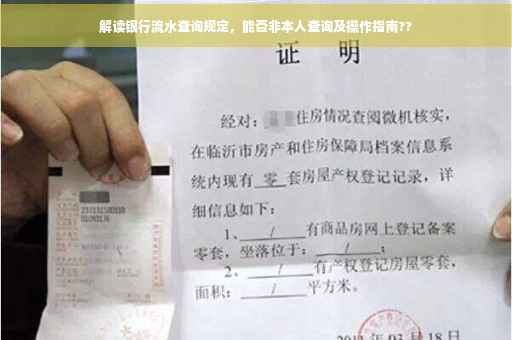 解读银行流水查询规定，能否非本人查询及操作指南??
证 明
经对：住房情况查阅微机核实，
在临沂市房产和住房保障局档案信息系
统内现有 零 套房屋产权登记记录，详
细信息如下：
1、 / 有商品房网上登记备案
零套，坐落位于： / ；
2、 / 有产权登记房屋零套，
面积： / 平方米。
03月18日